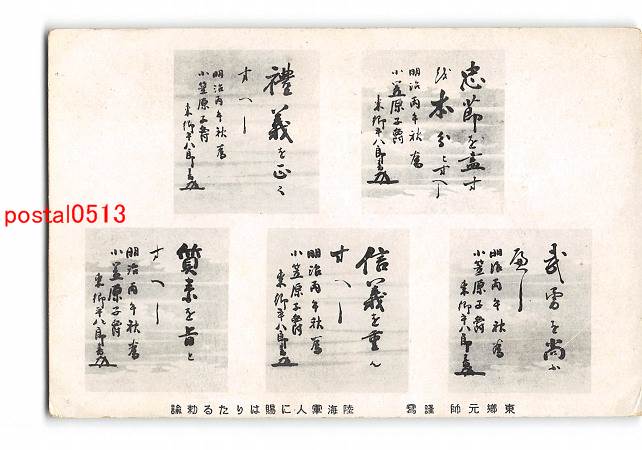 忠節を盡す
を本分とすへし
明治丙午秋爲
小笠原子爵
東郷平八郎
禮義を正く
すへし
明治丙午秋爲
小笠原子爵
東郷平八郎
武勇を尚ふ
へし
明治丙午秋爲
小笠原子爵
東郷平八郎
信義を重ん
すへし
明治丙午秋爲
小笠原子爵
東郷平八郎
質素を旨と
すへし
明治丙午秋爲
小笠原子爵
東郷平八郎
東郷元帥 謹寫 陸海軍人に賜はりたる勅諭
postal0513